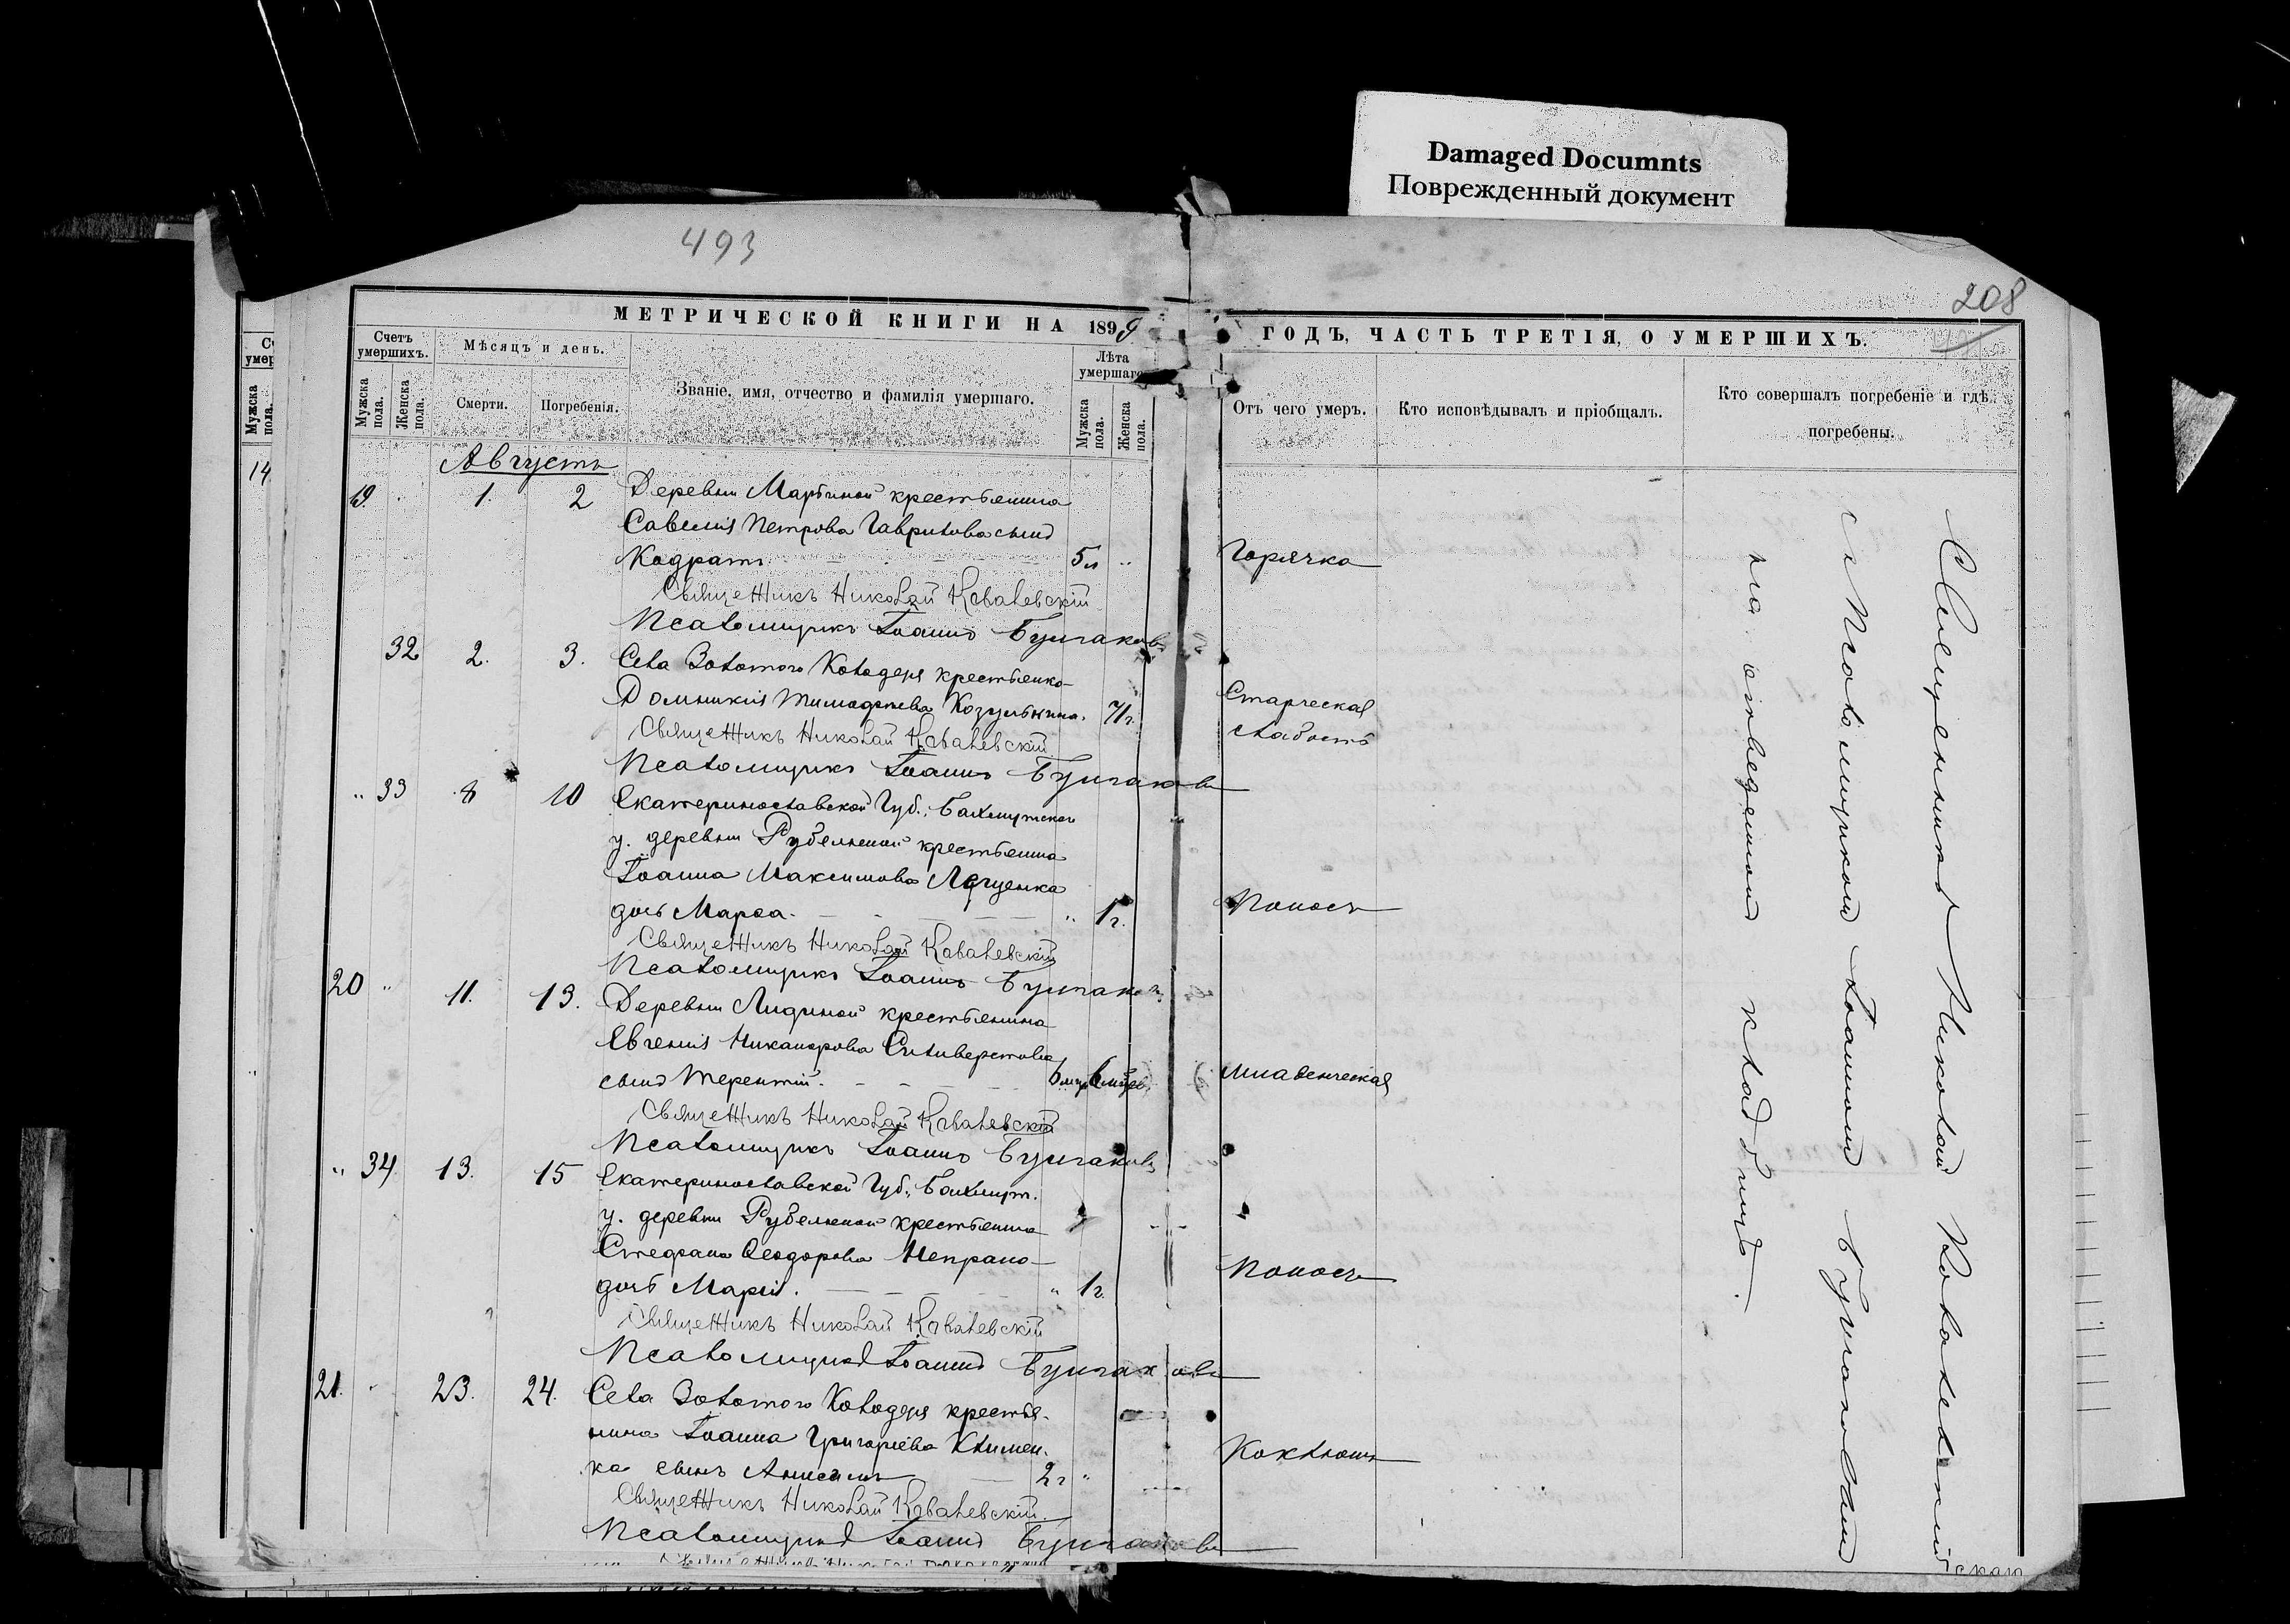 Damaged Documnts
Поврежденный документ
493
208
МЕТРИЧЕСКОЙ КНИГИ НА 1899
ГОДЪ, ЧАСТЬ ТРЕТІЯ, О УМЕРШИХЪ.
Счетъ умершихъ.
Мужска пола.
Женска пола.
Мѣсяцъ и день.
Смерти.
Погребенія.
Званіе, имя, отчество и фамилія умершаго.
Лѣта умершаго
Мужска пола.
Женска пола.
Отъ чего умеръ.
Кто исповѣдывалъ и пріобщалъ.
Кто совершалъ погребеніе и гдѣ погребены.
Мужска пола.
14
Августъ
19. 1. 2 Деревни Марьиной крестьянина
Савелія Петрова Гаврилова сынъ
Кодратъ 5 л " Горячка
Священникъ Николай Ковалевскій
Псаломщикъ Іоаннъ Булгаковъ
32 2. 3. Села Золотого Колодезя крестьянка
Домникія Тимофеева 71 г. Старческая
слабость
Священникъ Николай Ковалевскій
Псаломщикъ Іоаннъ Булгаковъ
" 33 8 10 Екатеринославской Губ., Бахмутскаго
у. деревни крестьянина
Іоанна Максимова
дочь Марѳа. " 1 г. Поносъ
Священникъ Николай Ковалевскій
Псаломщикъ Іоаннъ Булгаковъ
20 " 11. 13. Деревни Лидиной крестьянина
Евгенія Никанорова Силиверстова
сынъ Терентій. 6 Младенческая
Священникъ Николай Ковалевскій
Псаломщикъ Іоаннъ Булгаковъ
" 34 13. 15 Екатеринославской Губ., Бахмут.
у. деревни крестьянина
Стефана Ѳеодорова
дочь Марія. " 1 г. Поносъ
Священникъ Николай Ковалевскій
Псаломщикъ Іоаннъ Булгаковъ
21. 23. 24. Села Золотого Колодезя крестья-
нина Іоанна Григоріева Климен-
ка сынъ Анисимъ 2 г " Коклюшъ
Священникъ Николай Ковалевскій.
Псаломщикъ Іоаннъ Булгаковъ
Священникъ Николай Ковалевскій
съ Псаломщикомъ Іоанномъ Булгаковымъ
на отведенномъ кладбищѣ.